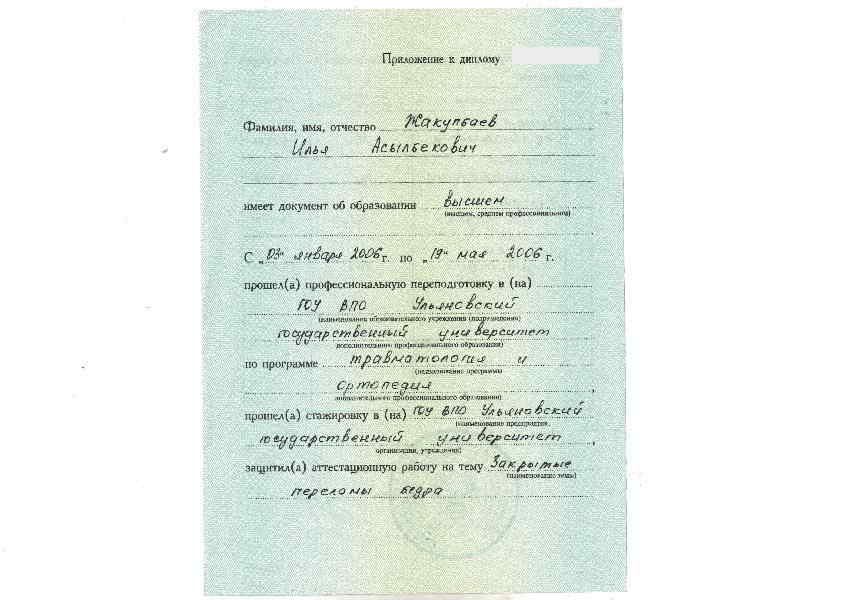 Приложение к диплому
Фамилия, имя, отчество Жакупбаев
Илья Асылбекович
имеет документ об образовании высшем
(высшем, среднем профессиональном)
С „03“ января 2006 г. по „19“ мая 2006 г.
прошел(а) профессиональную переподготовку в (на)
ГОУ ВПО Ульяновский
(наименование образовательного учреждения (подразделения)
государственный университет
дополнительного профессионального образования)
по программе травматология и
(наименование программы
ортопедия ,
дополнительного профессионального образования)
прошел(а) стажировку в (на) ГОУ ВПО Ульяновский
(наименование предприятия,
государственный университет ,
организации, учреждения)
защитил(а) аттестационную работу на тему Закрытые
(наименование темы)
переломы бедра